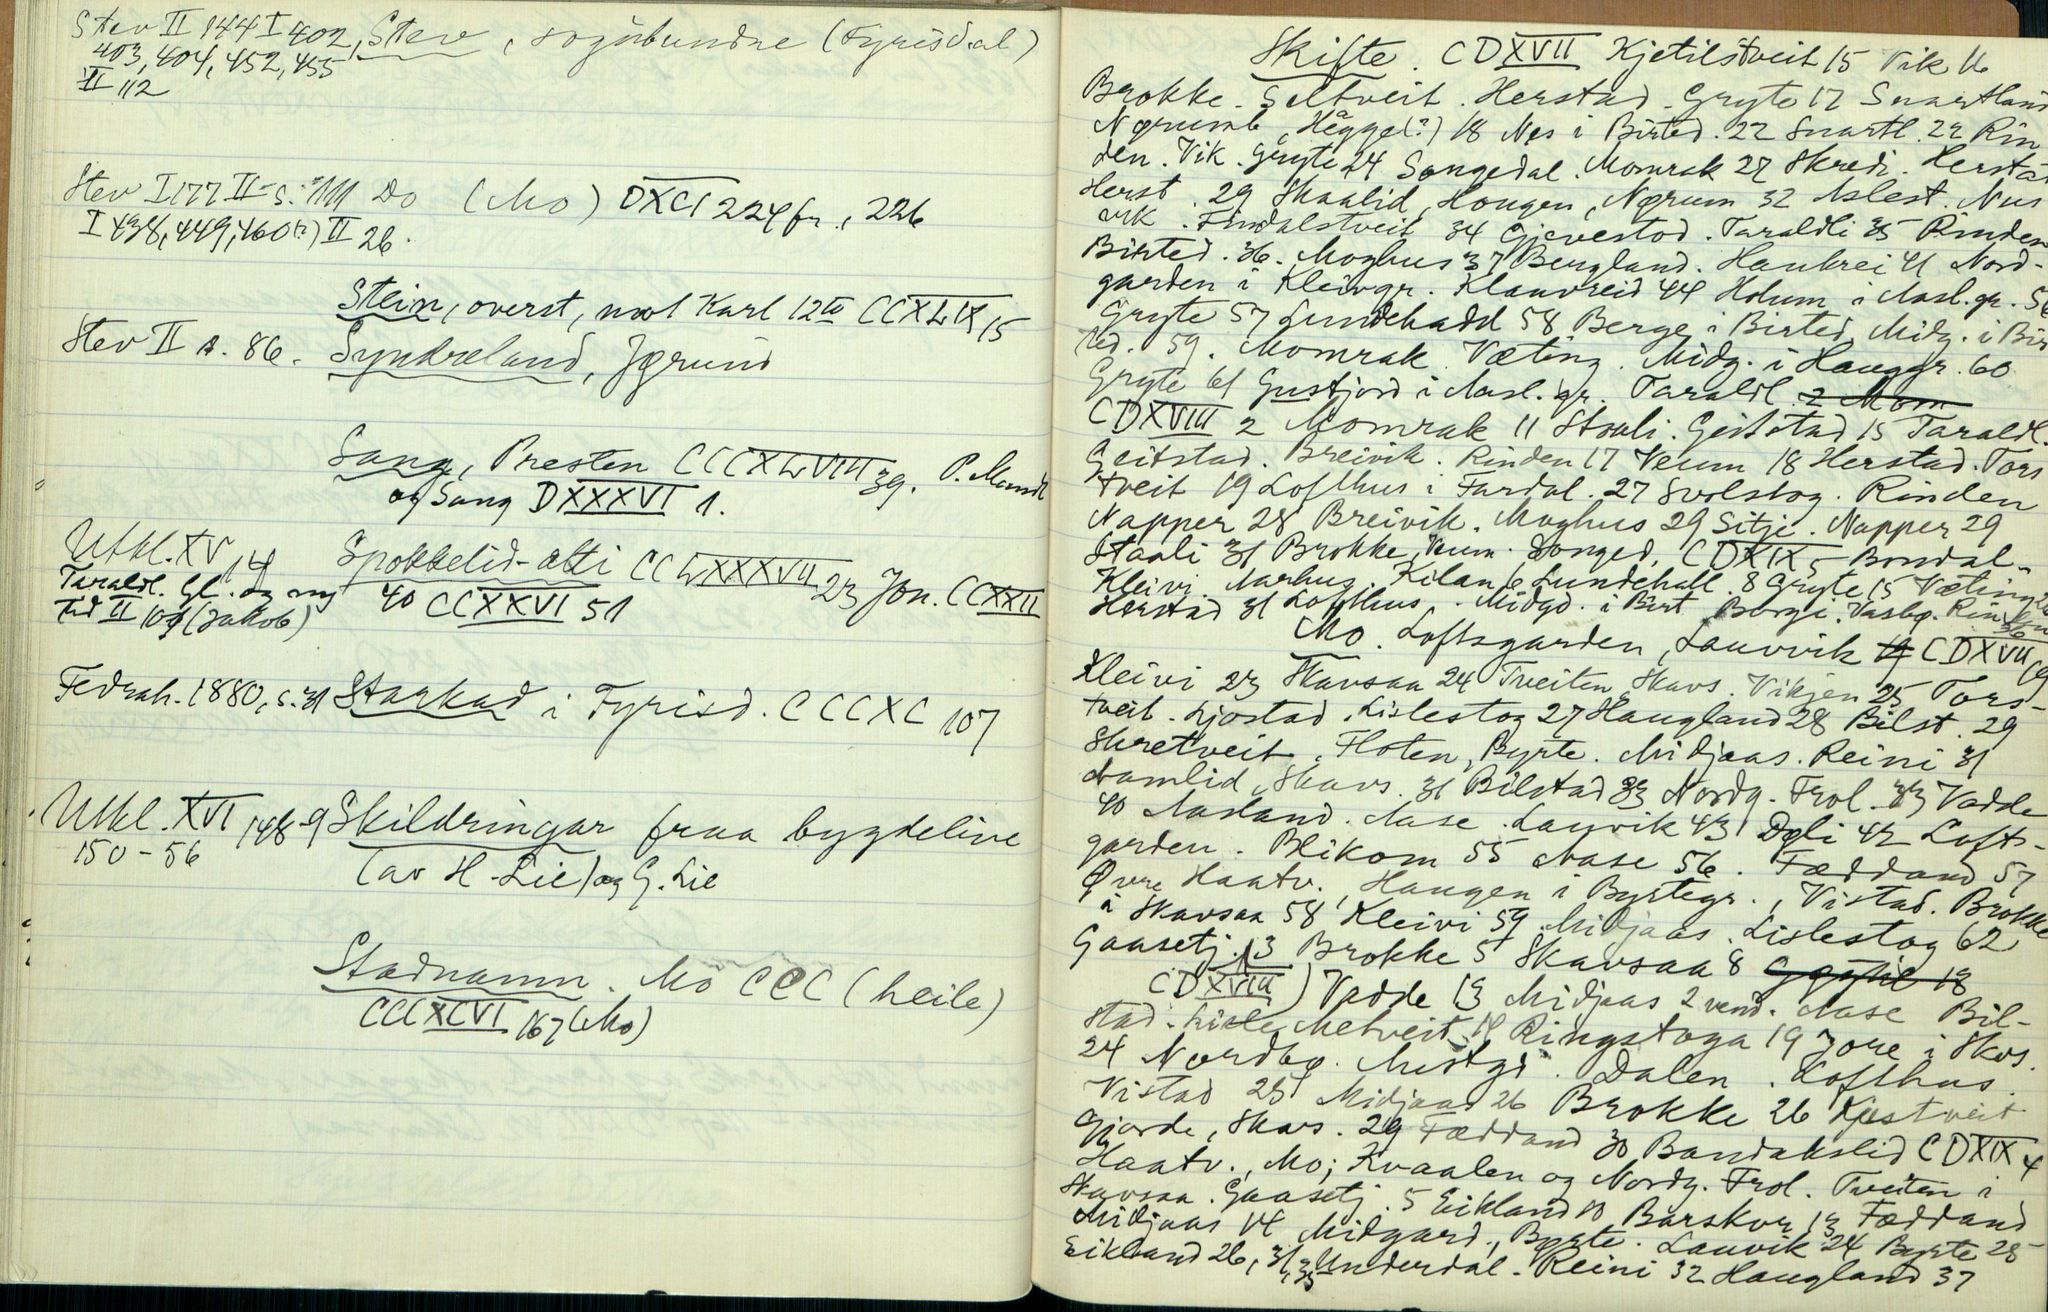 Stev II 144 I 402, Stev, sogubundne (Fyrisdal)
403, 404, 452, 455
II 112
Stev I 177 II s. 111 Do (Mo) DXCI 224 fr., 226
I 438, 449, 460(?) II 26.
Stein, overst, mot Karl 12te CCXLIX 15
Stev II s. 86. Syndreland, Jørund
Sang, Presten CCCXLVIII 39. P. Mandt
og Sang DXXXVI 1.
Utkl. XV 14 Spokkelid-ætti CCLXXXVII 23 Jon. CCXXII
Taraldl. Gl. og ny 40 CCXXVI 51
tid II 109 (Jakob)
Fedrah. 1880, s. 31 Starkad i Fyrisd. CCCXC 107
Utkl. XVI 148-9 Skildringar fraa bygdelive
150-56 (av H. Lie) og G. Lie
Stadnamn. Mo CCC (heile)
CCCXCVI 167 (Mo)
Skifte. CDXVII Kjetilstveit 15 Vik 16
Brokke. Seltveit. Herstad. Gryte 17 Snartland
Nørumb, Hegge(?) 18 Nes i Birted. 22 Snartl. 22 Rin
den. Vik. Gryte 24 Songedal. Momrak 27 Skredi. Herstad
Herst. 29 Skaalid, Hougen, Nørum 32 Aslest. Nus
vik. Findalstveit 34 Gjevestod. Taraldli 35 Rinden
Birted. 36. Moghus 37 Bergland. Haukrei 41 Nord-
garden i Kleivgr. Klauvreid 44 Holum i Aasl. gr. 56
Gryte 57 Lundehadd 58 Berge i Birted, Midg. i Bir
ted. 59. Momrak. Væting. Midg. i Hauggr. 60
Gryte 61 Gustjord i Aasl. gr. Taraldl. 2 Mom
CDXVIII 2 Momrak 11 Staali. Geitstad 15 Taraldl.
Geitstad. Breivik. Rinden 17 Veum 18 Herstad. Tors
tveit 19 Lofthus i Fardal. 27 Svolstog. Rinden
Napper 28 Breivik. Moghus 29 Sitje. Napper 29
Staali 31 Brokke, Veum. Songed. CDXIX 5 Bondal-
Kleivi Aarhus. Kilan 6 Lundehall. 8 Gryte 15 Væting 26
Herstad 31 Lofthus. Midgd. i Birt. Børgi. Vasbø. Rinden
36
Mo. Loftsgarden, Lauvvik 19 CDXVII 19
Kleivi 23 Skavsaa 24 Tveiten, Skavs. Vikjen 25 Tors-
tveit. Ljostad. Lislestog 27 Haugland 28 Bilst. 29
Skretveit, Floten, Byrte. Midjaas. Reini 31
Lamlid, Skavs. 31 Bilstad 33 Nordg. Frol. 33 Vadde
40 Aasland. Aase. Lauvik 43 Døli 42 Lofts-
garden. Blikom 55 Aase 56. Fæddand 57
Øvre Haatv., Haugen i Byrtegr., Vistad. Brokke
i Skavsaa 58 Kleivi 59 Midjaas. Lislestog 62
Gaasetj. 3 Brokke 5 Skavsaa 8
CDXVIII) Vadde 13 Midjaas 2 vend. Aase Bil-
stad. Lisle Metveit 18 Ringstoga 19 Jore i Skvs.
24 Nordbø. Midgd. Dalen. Lofthus.
Vistad 25 Midjaas 26 Brokke 26 Kjestveit
Gjorde, Skavs. 29 Fæddand 30 Bandakslid CDXIX 4
Haatv., Mo; Kvaalen og Nordg. Frol. Tveiten i
Skavsaa. Gaasetj. 5 Eikland 10 Barskor 13 Fæddand
Midjaas 14 Midgard, Byrte. Lauvik 24 Byrte 25
Eikland 26, 31, 35 Underdal. Reini 32 Haugland 37